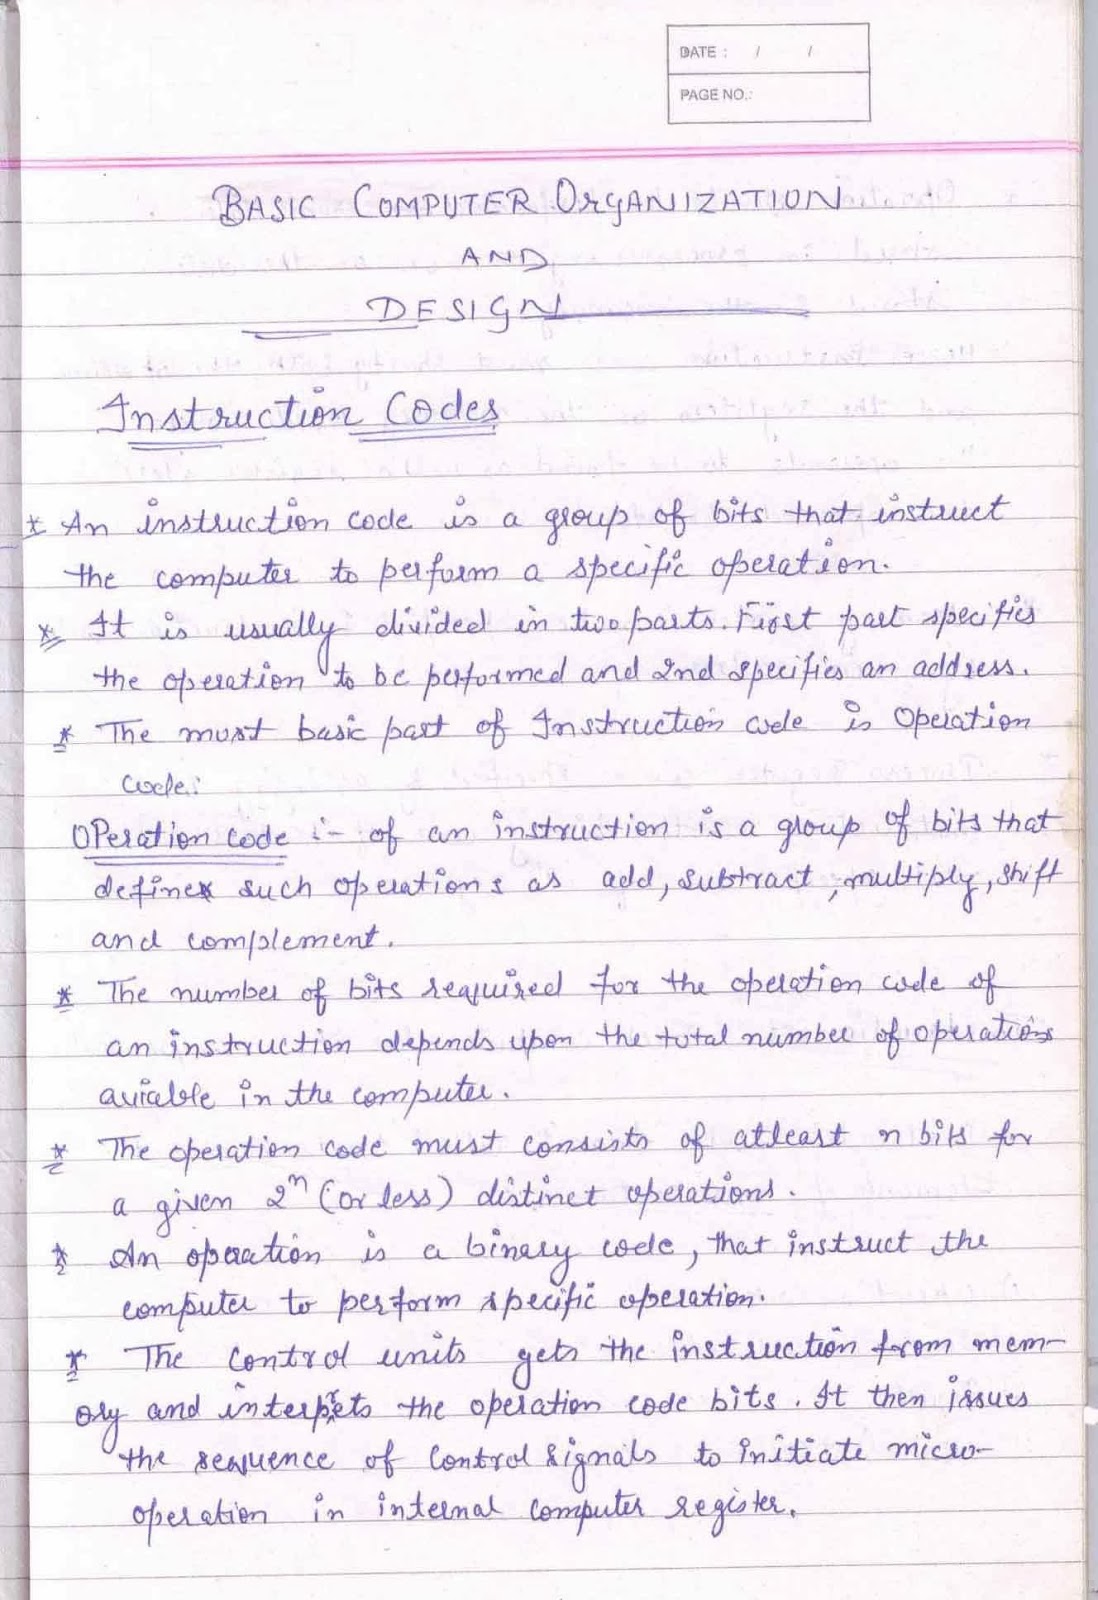 DATE : / /
PAGE NO.:
BASIC COMPUTER OrgANIZATION
AND
DESIGN
Instruction Codes
* An instruction code is a group of bits that instruct
the computer to perform a specific operation.
* It is usually divided in two parts. First part specifies
the operation to be performed and 2nd specifies an address.
* The must basic part of Instruction code is Operation
code:
OPeration code :- of an instruction is a group of bits that
define such operations as add, subtract, multiply, shift
and complement.
* The number of bits required for the operation code of
an instruction depends upon the total number of operations
aviable in the computer.
* The operation code must consists of atleast n bits for
a given 2ⁿ (or less) distinct operations.
* An operation is a binary code, that instruct the
computer to perform specific operation.
* The control units gets the instruction from mem-
ory and interprets the operation code bits. It then issues
the sequence of control signals to initiate micro-
operation in internal computer register.